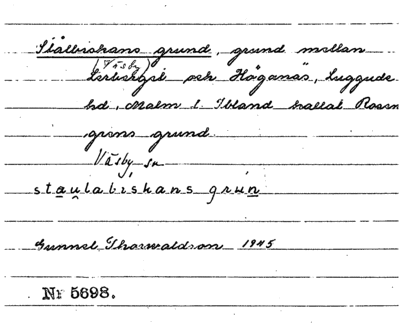 Stålbiskans grund, grund mellan
(Väsby)
Lerberget och Höganäs, Luggude
hd, Malm. l. Ibland kallat Rosen
grens grund.
Väsby sn
staulabiskans grun
Gunnel Thorwaldson 1945
Nr 5698.